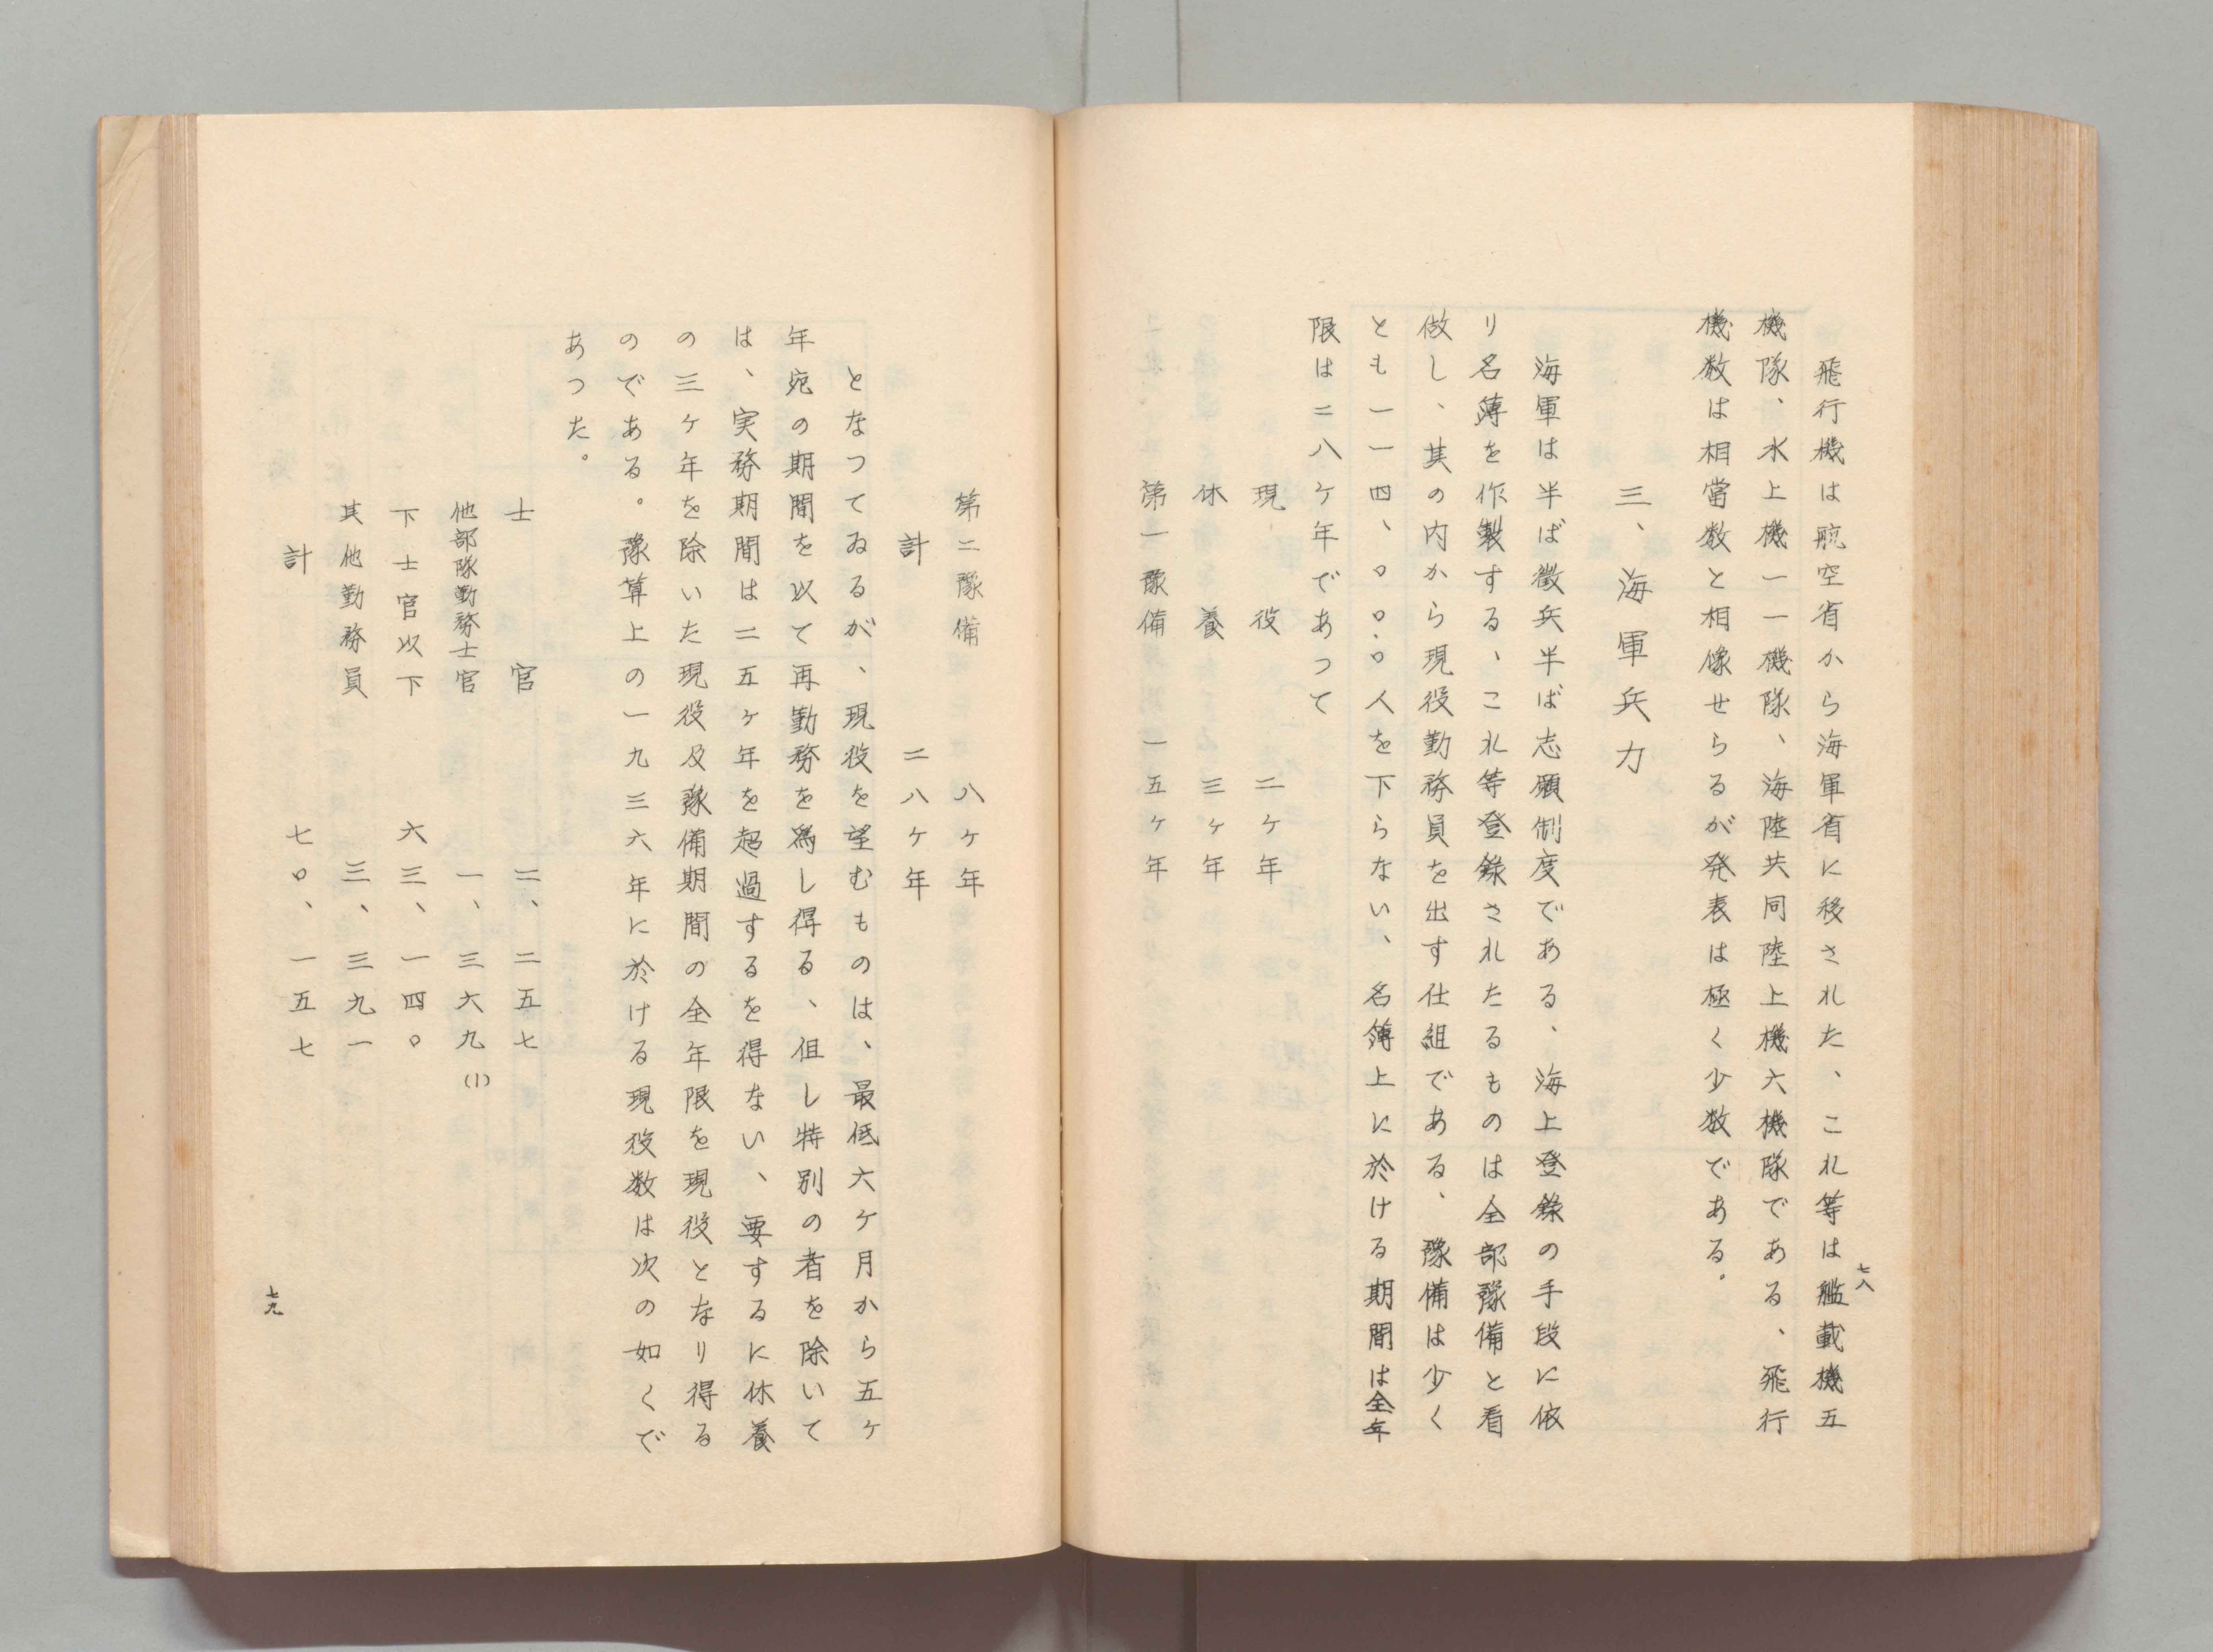 飛行機は航空省から海軍省に移された、これ等は艦載機五
機隊、水上機一一機隊、海陸共同陸上機六機隊である、飛行
機数は相當数と相像せらるが発表は極く少数である。
三、海軍兵力
海軍は半ば徴兵半ば志願制度である、海上登録の手段に依
り名簿を作製する、これ等登録されたるものは全部豫備と看
做し、其の内から現役勤務員を出す仕組である、豫備は少く
とも一一四、〇〇〇人を下らない、名簿上に於ける期間は全年
限は二八ケ年であつて
現役 二ケ年
休養 三ケ年
第一豫備 一五ケ年
七八
第二豫備 八ケ年
計 二八ケ年
となつてゐるが、現役を望むものは、最低六ケ月から五ケ
年宛の期間を以て再勤務を爲し得る、但し特別の者を除いて
は、実務期間は二五ケ年を超過するを得ない、要するに休養
の三ケ年を除いた現役及豫備期間の全年限を現役となり得る
のである。豫算上の一九三六年に於ける現役数は次の如くで
あつた。
士官 二、二五七
他部隊勤務士官 一、三六九(1)
下士官以下 六三、一四〇
其他勤務員 三、三九一
計 七〇、一五七
七九